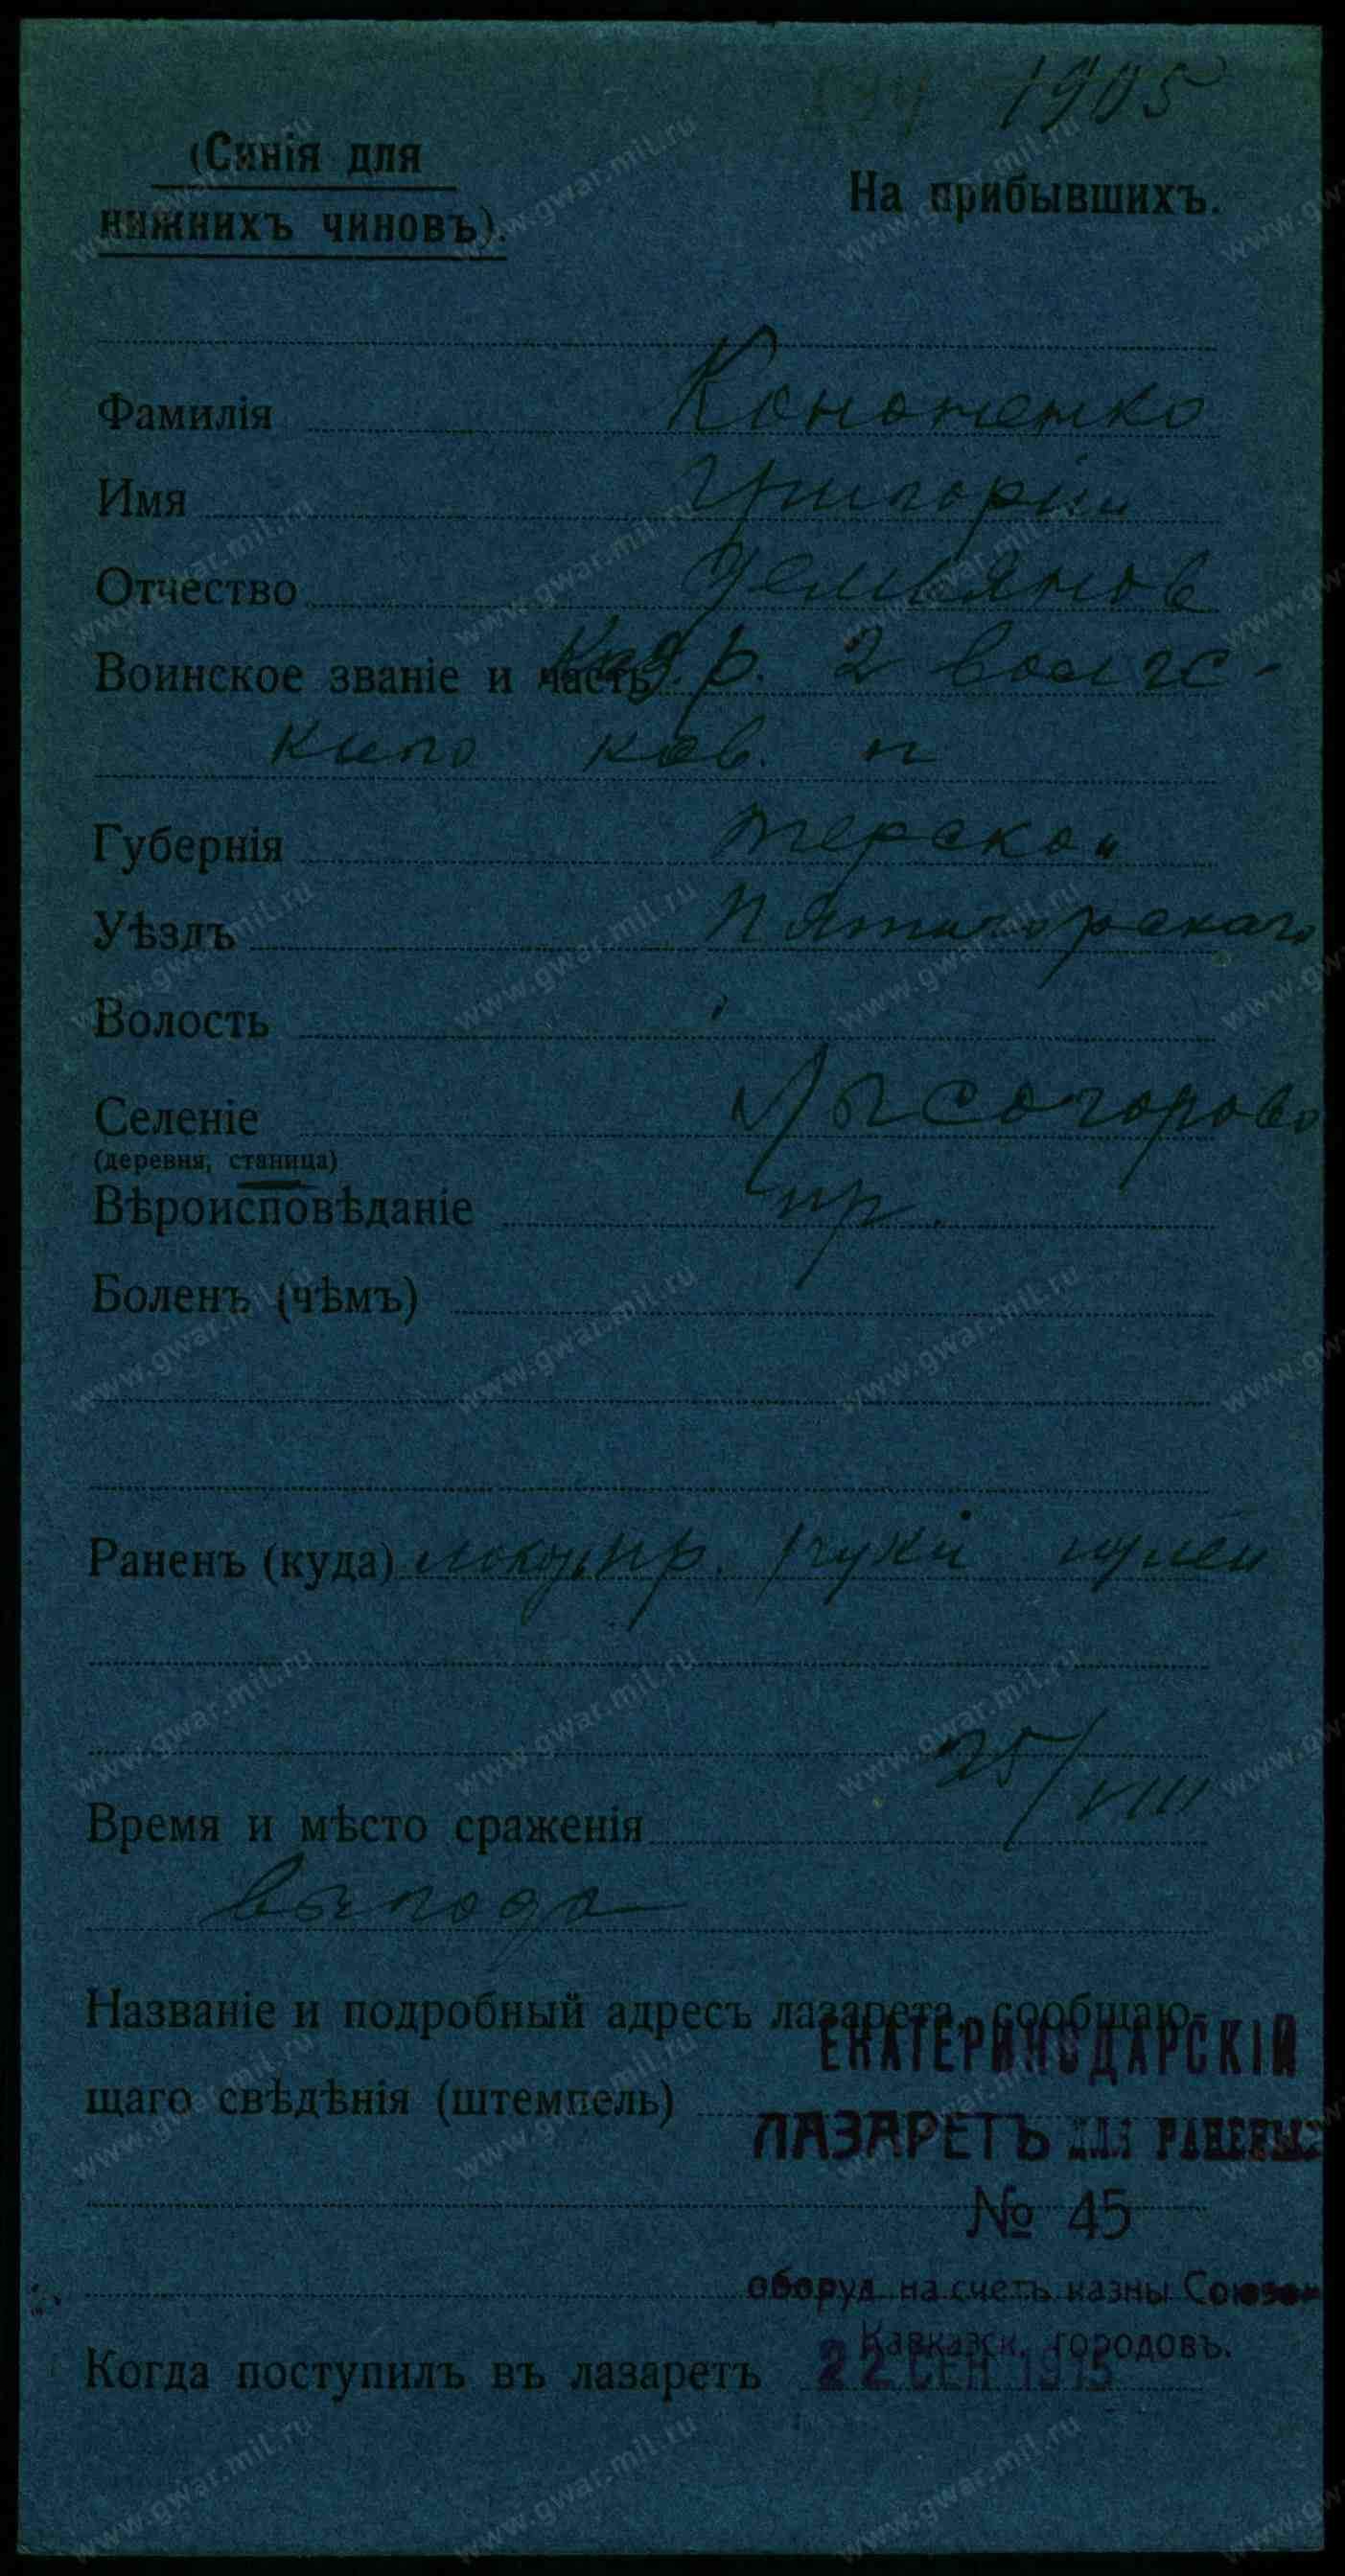 1905
(Синія для
нижнихъ чиновъ).
На прибывшихъ.
Фамилія Кононенко
Имя Григорій
Отчество Демьянов
Воинское званіе и часть Каз. р. 2 волгс-
каго каз. п
Губернія Терской
Уѣздъ Пятигорскаго
Волость
Селеніе Лысогорово
(деревня, станица)
Вѣроисповѣданіе пр.
Боленъ (чѣмъ)
Раненъ (куда) пр. руки пулей
Время и мѣсто сраженія 25/VIII
Названіе и подробный адресъ лазарета, сообщаю-
щаго свѣдѣнія (штемпель)
ЕКАТЕРИНОДАРСКІЙ
ЛАЗАРЕТЪ ДЛЯ РАНЕНЫХ
№ 45
оборуд на счетъ казны Союзом
Кавказск. городовъ.
Когда поступилъ въ лазаретъ 22 СЕН 1915
www.gwar.mil.ru